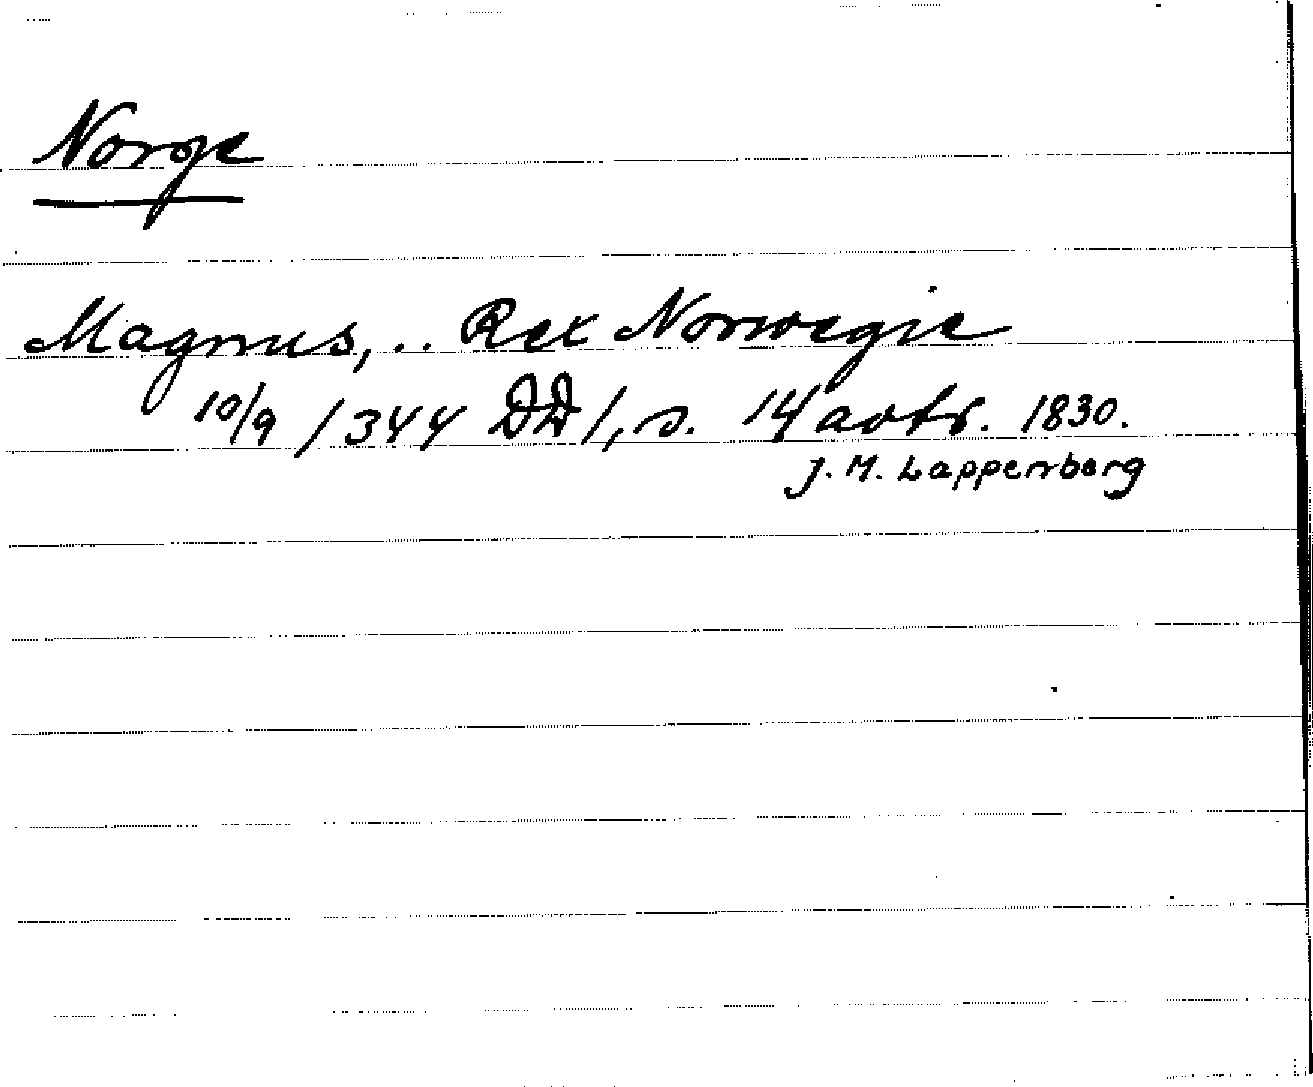 Norge
Magnus, .. Rex Norwegie
10/9 1344 DD 1, s. 14 aobs. 1830.
J. M. Lappenberg